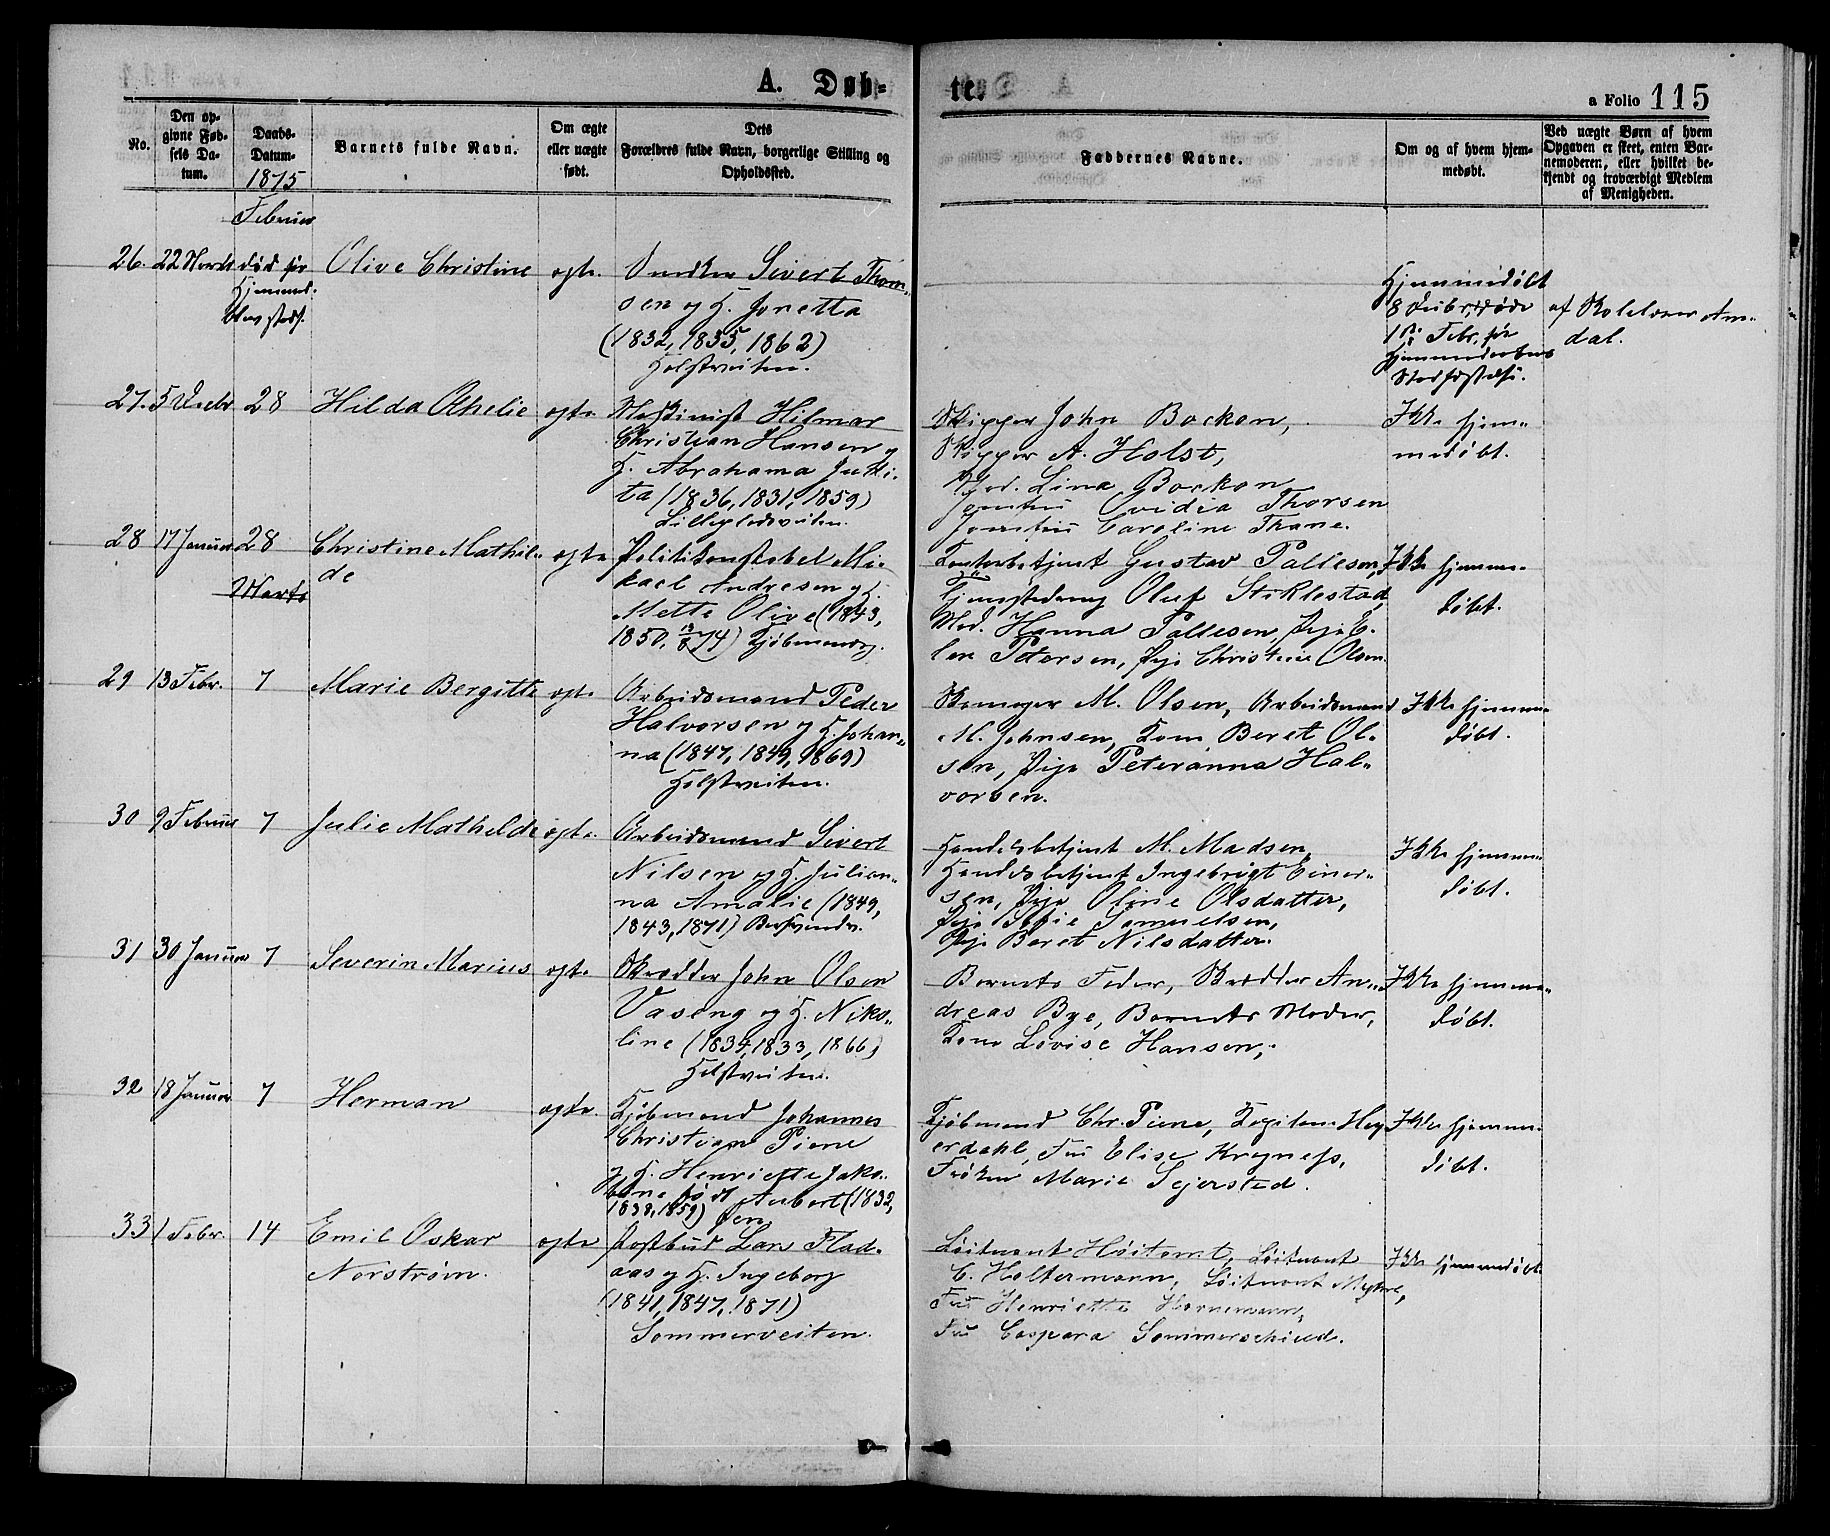 A. Døb-
te.
a Folio 115
No.
Den op-
givne Fød-
sels Da-
tum.
Daabs-
Datum.
1875
Barnets fulde Navn.
Om ægte
eller uægte
født.
Dets
Forældres fulde Navn, borgerlige Stilling og
Opholdssted.
Faddernes Navne.
Om og af hvem hjem-
medøbt.
Ved uægte Børn af hvem
Opgaven er skeet, enten Bar-
nemoderen, eller hvilket be-
kjendt og troværdigt Medlem
af Menigheden.
Februar
26. 22 død før
Olive Christine ægte
Snedker Sivert Thom-
sen og H. Jonetta
(1832, 1835, 1862)
Holstveiten.
Hjemmedøbt
8 døde
Febr. før
af Skolelærer Am-
dal.
27. 5 28
Hilda Othelie ægte
Maskinist Hilmar
Christian Hansen og
H. Abrahama Jutti-
ta (1836, 1831, 1859)
Skipper John Bockon,
Skipper A. Holst,
Mad. Lina Bockon
Jomfru Ovidia Thorsen
Jomfru Caroline Thane.
Ikke hjem-
medøbt.
28 17 Januar 28
Christine Mathil-
de
ægte
Politikonstabel Mi-
kael Andresen og H.
Mette Olive (1843,
1850, 74) Kjøbmandsg.
Kontorbetjent Gustav Pallesen,
Oluf Stiklestad,
Mad. Hanna Pallesen, Pige E-
len Petersen, Pige Christine Olsen.
Ikke hjemme-
døbt.
Marts
29 13 Febr. 7
Marie Bergitte ægte
Arbeidsmand Peder
Halvorsen og H. Johan-
na (1847, 1849, 1869)
Holstveiten.
Skomager M. Olsen, Arbeidsmand
M. Johnsen, Kone Beret Ol-
sen, Pige Peteranna Hal-
vorsen.
Ikke hjemme-
døbt.
30 9 Februar 7
Julie Mathilde ægte
Arbeidsmand Sivert
Nilsen og H. Julian-
na Amalie (1849,
1843, 1871)
Handelsbetjent M. Madsen,
Handelsbetjent Ingebrigt Einar-
sen, Pige Oline Olsdatter,
Pige Sofie Samuelsen,
Pige Beret Nilsdatter.
Ikke hjemme-
døbt.
31 30 Januar 7
Severin Marius ægte
Skrædder John Olsen
Vaseng og H. Niko-
line (1834, 1833, 1866)
Holstveiten.
Barnets Fader, Skrædder An-
dreas Bye, Barnets Moder,
Kone Lovise Hansen,
Ikke hjemme-
døbt.
32 18 Januar 7
Herman ægte
Kjøbmand Johannes
Christian Piene
og H. Henriette Jako-
bine født Aubert (1832,
1838, 1859)
Kjøbmand Chr. Piene, Kapitain Hey-
erdahl, Fru Elise Krogness,
Frøken Marie Sejersted.
Ikke hjemme-
døbt.
33 1 Febr. 14
Emil Oskar
Norstrøm.
ægte
Postbud Lars Flad-
aas og H. Ingeborg
(1841, 1847, 1871)
Sommerveiten.
Løitnant Høitomt, Løitnant
C. Holtermann, Løitnant Myhre,
Fru Henriette Hornemann,
Fru Caspara Sommerschield.
Ikke hjemmedøbt.